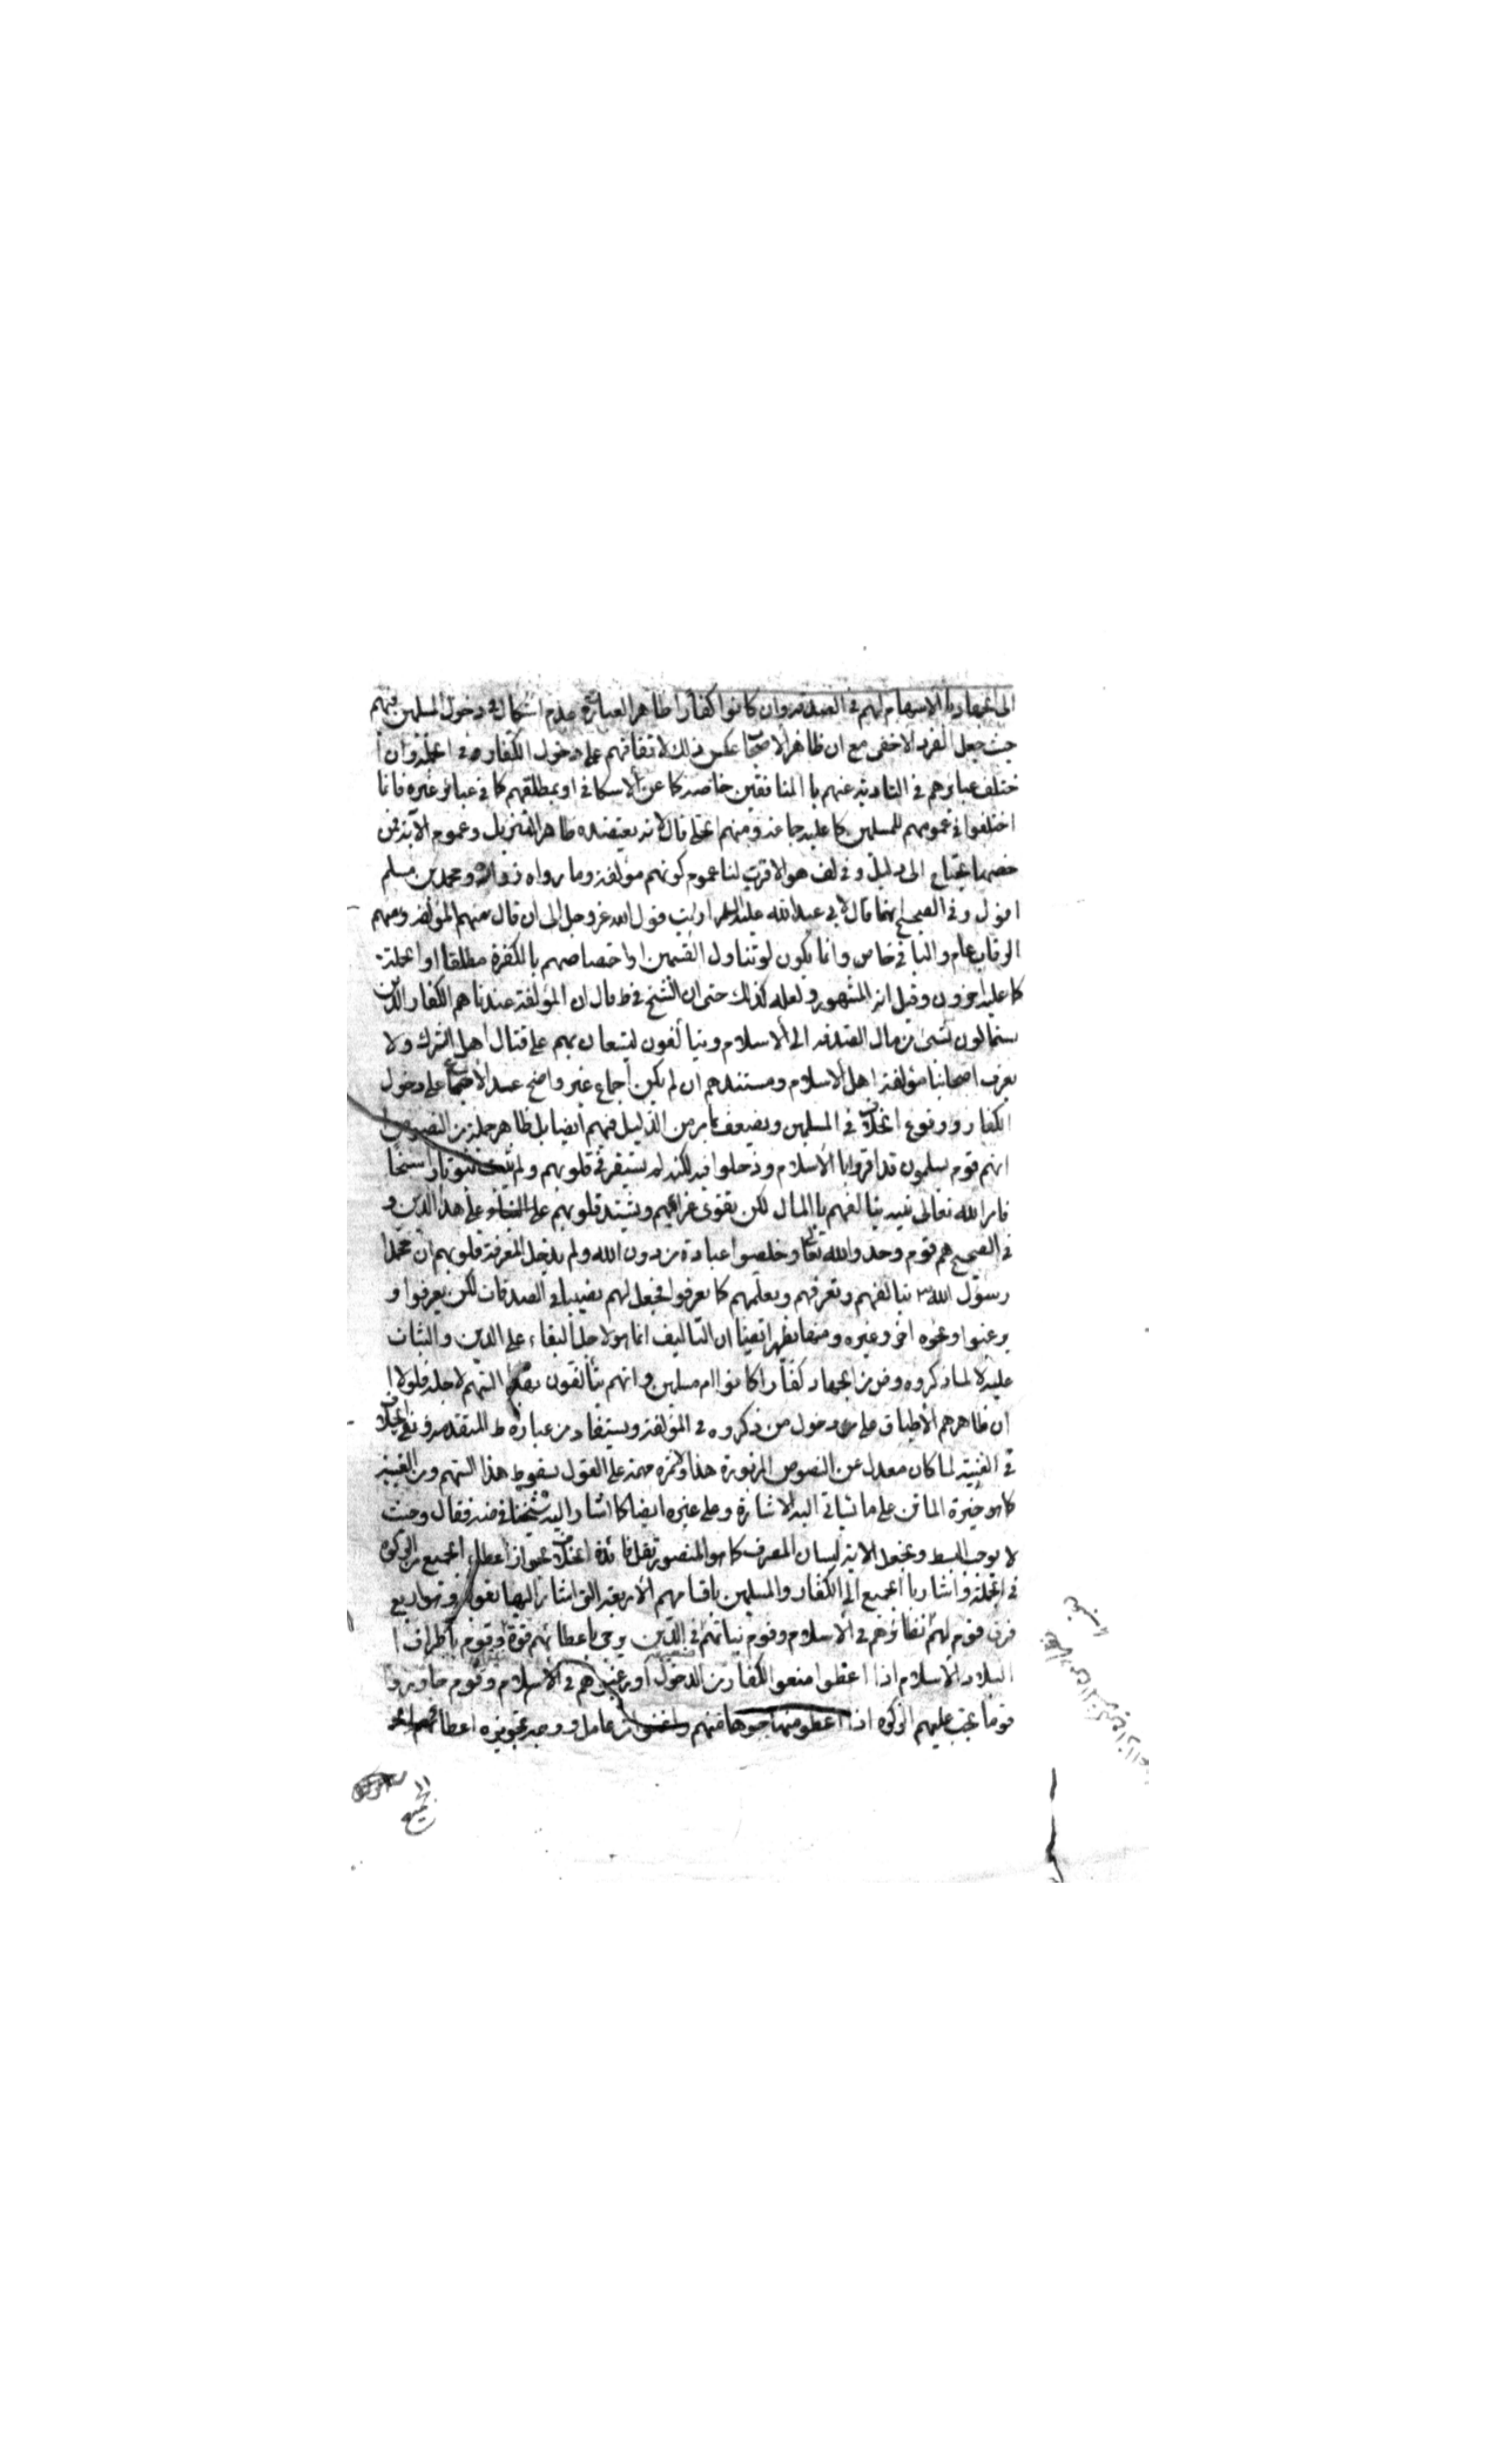 الى الجهاد بالاسهام لهم في الصدقة وان كانوا كفارا ظاهر العبارة عدم اشكال في دخول المسلمين فيهم
حيث جعل الفرد الاخفى مع ان ظاهر الاصحاب عكس ذلك لاتفاقهم على دخول الكفار في الجملة وان ا
ختلف عبائرهم في التادية عنهم با المنافقين خاصة كما عن الاسكافي او بمطلقهم كما في عبائر غيره فانما
اختلفوا في عمومهم للمسلمين كما عليه جماعة ومنهم الحلي قال لانه يعضده ظاهر التنزيل وعموم الآية فمن
خصها يحتاج الى دليل وفي لف هو الاقرب لنا عموم كونهم مؤلفة وما رواه زرارة ومحمد بن مسلم
اقول وفي الصحيح انهما قالا لابي عبد الله عليه السلام ارايت قول الله عز وجل الى ان قال سهم المؤلفة وسهم
الرقاب عام والباقي خاص وانما يكون لو تناول القسمين او اختصاصهم بالكفرة مطلقا او الجملة
كما عليه اخرون وقيل انه المشهور ولعله كذلك حتى ان الشيخ في ط قال ان المؤلفة عندنا هم الكفار الذين
يستمالون بشئ من مال الصدقة الى الاسلام ويتالفون ليستعان بهم على قتال اهل الشرك ولا
يعرف اصحابنا مؤلفة اهل الاسلام ومستندهم ان لم يكن اجماع غير واضح عدا الاجماع على دخول
الكفار ووقوع الخلاف في المسلمين ويضعف بما مر من الدليل فيهم ايضا بل ظاهر جملة من النصوص
انهم قوم مسلمون قد اقروا با الاسلام ودخلوا فيه لكنه لم يستقر في قلوبهم ولم يثبت ثبوتا راسخا
فامر الله تعالى نبيه بتالفهم با المال لكى يقوى عزائمهم ويشتد قلوبهم على البقاء على هذا الدين و
في الصحيح هم قوم وحدوا الله تعالى وخلعوا عبادة من دون الله ولم يدخل المعرفة قلوبهم ان محمدا
رسول الله ص يتالفهم ويعرفهم ويعلمهم كما يعرفوا فجعل لهم نصيبا في الصدقات لكى يعرفوا و
يرغبوا ونحوه اخر وغيره ومنها يظهر ايضا ان التاليف انما هو لاجل البقاء على الدين والثبات
عليه لا لما ذكروه من الجهاد كفارا كانوا ام مسلمين وانهم يتالفون بهذا السهم لاجله فلولا ا
ان ظاهرهم الاطباق على دخول من ذكروه في المؤلفة ويستفاد من عبارة ط المتقدمة ونفي الخلاف
في الغنية لما كان معدل عن النصوص المزبورة هذا ولا ثمرة مهمة على القول بسقوط هذا السهم زمن الغيبة
كما هو خيرة الماتن على ما سياتي اليه الاشارة وعلى غيره ايضا كما اشار اليه شيخنا في ضه فقال وحيث
لا يوجب البسط ونجعل الاية لبيان المصرف كما هو المنصور تقل فائدة الخلاف لجواز اعطاء الجميع من الزكوة
في الجملة واشار با الجميع الى الكفار والمسلمين باقسامهم الاربعة التي اشار اليها بقوله وهو اربع
فرق قوم لهم نظائرهم في الاسلام وقوم نياتهم في الدين يرجى باعطائهم قوة وقوم باطراف ا
البلاد الاسلام اذا اعطوا منعوا الكفار من الدخول او رغبوهم في الاسلام وقوم جاوروا
قوما يجب عليهم الزكوة اذا اعطوا منها جبوها منهم واغنوا عن عامل ووجه تجويزه اعطائهم
الجميع